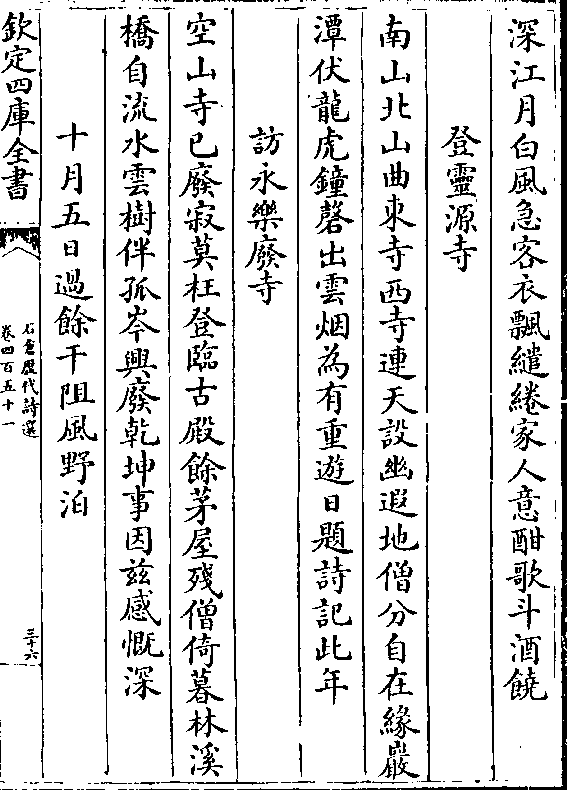 深江月白風急客衣飄繾綣家人意酣歌斗酒饒
登靈源寺
南山北山曲東寺西寺連天設幽遐地僧分自在緣巖
潭伏龍虎鐘磬出雲烟為有重遊日題詩記此年
訪永樂廢寺
空山寺已廢寂莫枉登臨古殿餘茅屋殘僧倚暮林溪
橋自流水雲樹伴孤岑興廢乾坤事因兹感慨深
十月五日過餘干阻風野泊
欽定四庫全書
石倉歷代詩選
卷四百五十一
三十六